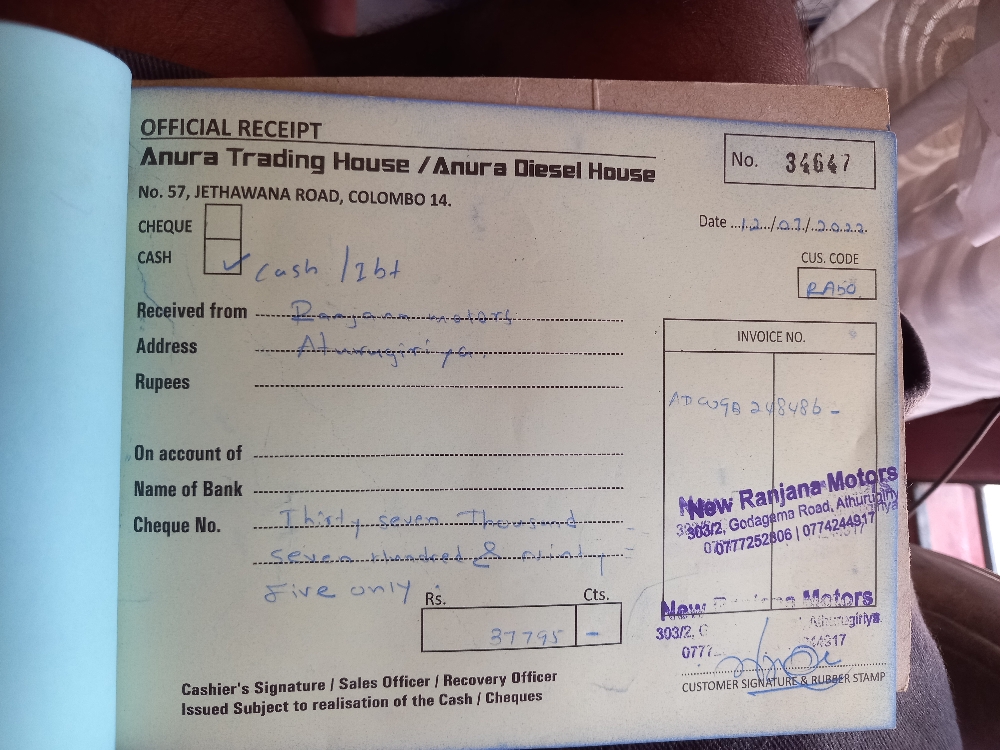 OFFICIAL RECEIPT
Anura Trading House / Anura Diesel House
No. 57, JETHAWANA ROAD, COLOMBO 14.
No. 34647
Date ...12.../07./..2022.
CHEQUE
CASH ✓ Cash / Ibt
CUS. CODE
RA50
Received from Ranjana motors
Address Athurugiriya.
Rupees
INVOICE NO.
ADCW9B 248486 -
On account of
Name of Bank
Cheque No. Thirty seven Thousand
seven Hundred & ninty
Five only
New Ranjana Motors
303/2, Godagama Road, Athurugiriya
0777252806 | 0774244917
Rs. Cts.
37795 -
New Ranjana Motors
303/2, G Athurugiriya
077
CUSTOMER SIGNATURE & RUBBER STAMP
Cashier's Signature / Sales Officer / Recovery Officer
Issued Subject to realisation of the Cash / Cheques